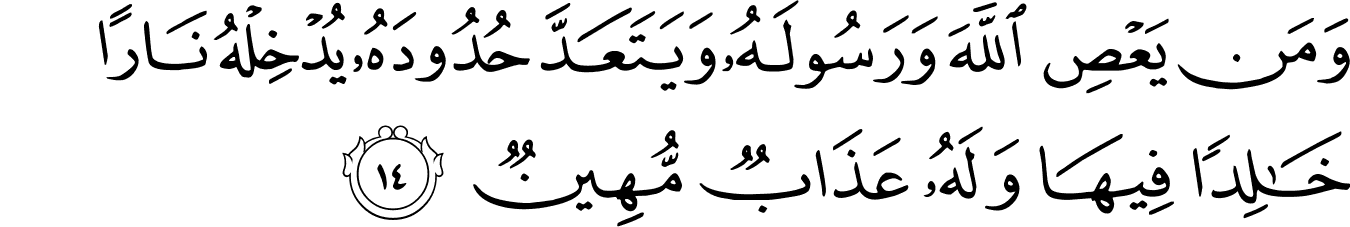 وَمَن يَعۡصِ ٱللَّهَ وَرَسُولَهُۥ وَيَتَعَدَّ حُدُودَهُۥ يُدۡخِلۡهُ نَارًا
خَٰلِدٗا فِيهَا وَلَهُۥ عَذَابٞ مُّهِينٞ ١٤